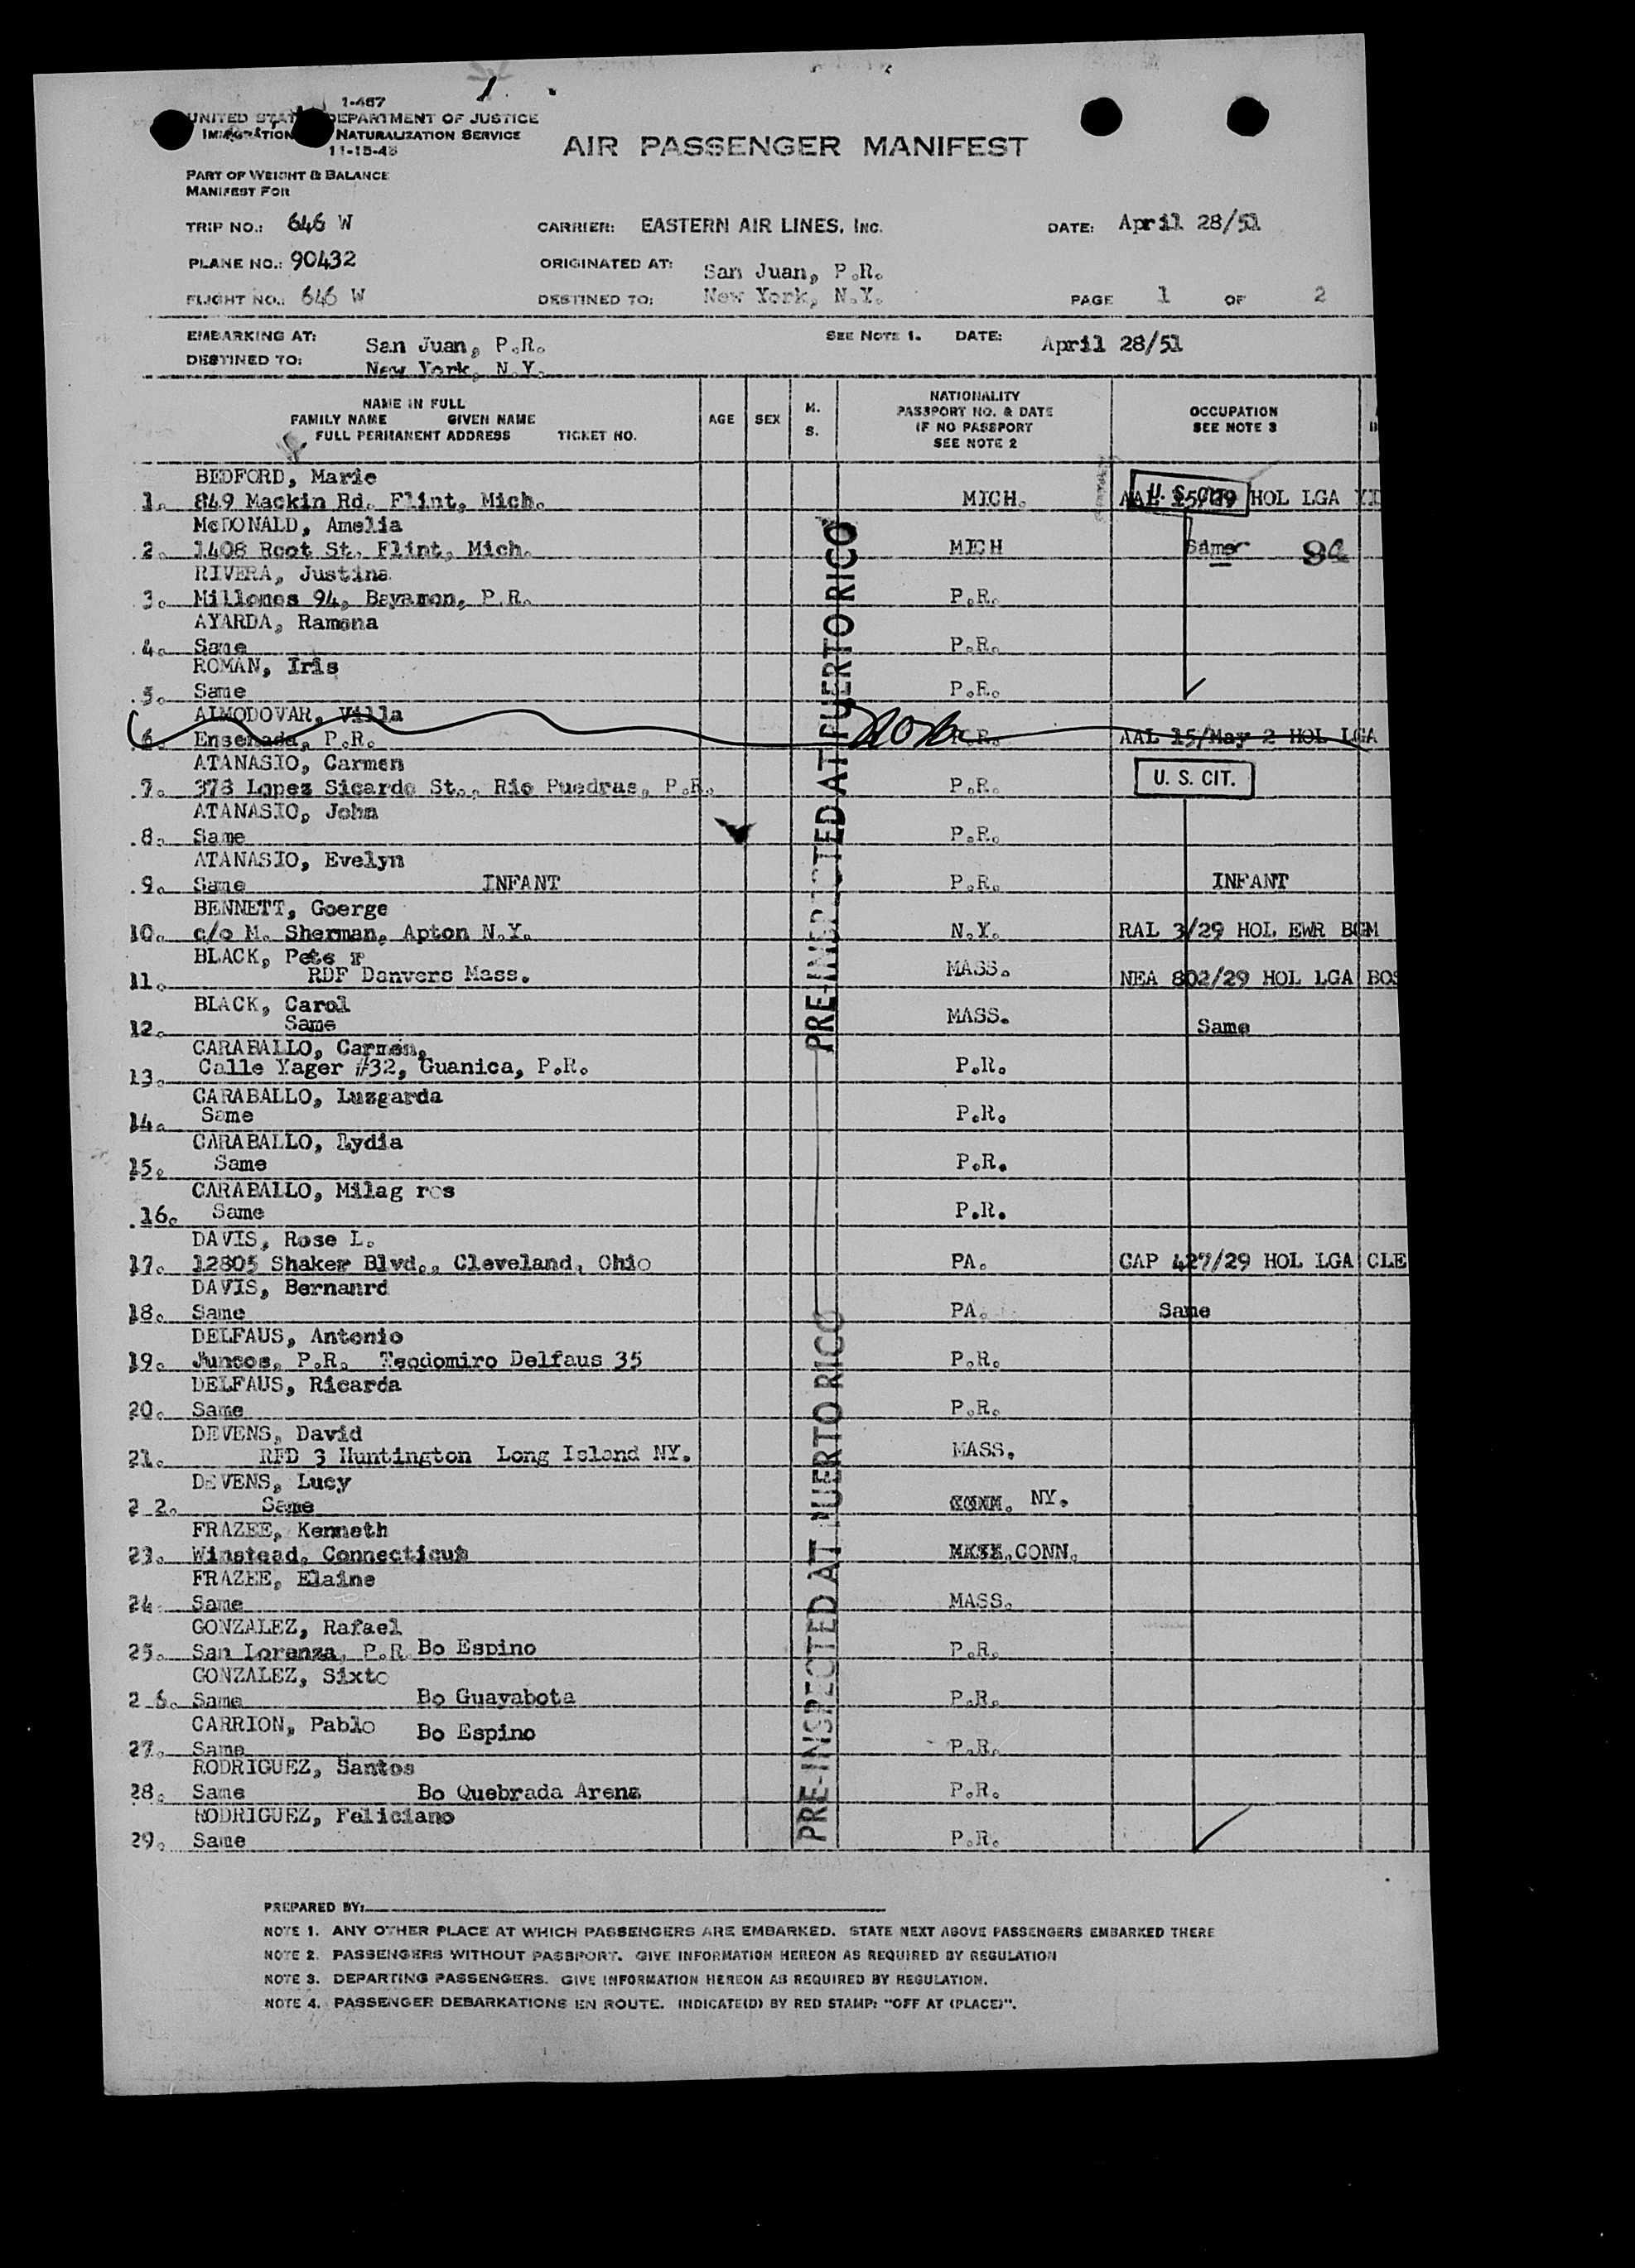 1-467
UNITED STATES DEPARTMENT OF JUSTICE
IMMIGRATION NATURALIZATION SERVICE
11-15-48
AIR PASSENGER MANIFEST
PART OF WEIGHT & BALANCE
MANIFEST FOR
TRIP NO.: 646 W CARRIER: EASTERN AIR LINES, INC. DATE: April 28/51
PLANE NO.: 90432 ORIGINATED AT: San Juan, P.R.
FLIGHT NO.: 646 W DESTINED TO: New York, N.Y. PAGE 1 OF 2
EMBARKING AT: San Juan, P.R. SEE NOTE 1. DATE: April 28/51
DESTINED TO: New York, N.Y.
NAME IN FULL
FAMILY NAME GIVEN NAME
FULL PERMANENT ADDRESS TICKET NO.
AGE SEX M. S.
NATIONALITY
PASSPORT NO. & DATE
IF NO PASSPORT
SEE NOTE 2
OCCUPATION
SEE NOTE 3
BEDFORD, Marie
1. 849 Mackin Rd. Flint, Mich. MICH. AAL 15/29 HOL LGA
U. S. CIT.
McDONALD, Amelia
2. 1408 Root St. Flint, Mich. MICH Same 94
RIVERA, Justina
3. Millones 94, Bayamon, P.R. P.R.
AYARDA, Ramona
4. Same P.R.
ROMAN, Iris
5. Same P.R.
ALMODOVAR, Villa
6. Ensenada, P.R. P.R. AAL 15/May 2 HOL LGA
ATANASIO, Carmen
7. 373 Lopez Sicardo St., Rio Puedras, P.R. P.R. U. S. CIT.
ATANASIO, John
8. Same P.R.
ATANASIO, Evelyn
9. Same INFANT P.R. INFANT
BENNETT, Goerge
10. c/o M. Sherman, Apton N.Y. N.Y. RAL 3/29 HOL EWR BGM
BLACK, Pete r
11. RDF Danvers Mass. MASS. NEA 802/29 HOL LGA BOS
BLACK, Carol
12. Same MASS. Same
CARABALLO, Carmen,
13. Calle Yager #32, Guanica, P.R. P.R.
CARABALLO, Luzgarda
14. Same P.R.
CARABALLO, Lydia
15. Same P.R.
CARABALLO, Milag ros
16. Same P.R.
DAVIS, Rose L.
17. 12805 Shaker Blvd., Cleveland, Ohio PA. CAP 427/29 HOL LGA CLE
DAVIS, Bernanrd
18. Same PA. Same
DELFAUS, Antonio
19. Juncos, P.R. Teodomiro Delfaus 35 P.R.
DELFAUS, Ricarda
20. Same P.R.
DEVENS, David
21. RFD 3 Huntington Long Island NY. MASS.
DEVENS, Lucy
2 2. Same NY.
FRAZEE, Kenneth
23. Winstead, Connecticut CONN.
FRAZEE, Elaine
24. Same MASS.
GONZALEZ, Rafael
25. San Lorenza, P.R. Bo Espino P.R.
GONZALEZ, Sixto
2 6. Same Bo Guayabota P.R.
CARRION, Pablo Bo Espino
27. Same P.R.
RODRIGUEZ, Santos
28. Same Bo Quebrada Arena P.R.
RODRIGUEZ, Feliciano
29. Same P.R.
PRE-INSPECTED AT PUERTO RICO
PRE-INSPECTED AT PUERTO RICO
PREPARED BY:
NOTE 1. ANY OTHER PLACE AT WHICH PASSENGERS ARE EMBARKED. STATE NEXT ABOVE PASSENGERS EMBARKED THERE
NOTE 2. PASSENGERS WITHOUT PASSPORT. GIVE INFORMATION HEREON AS REQUIRED BY REGULATION
NOTE 3. DEPARTING PASSENGERS. GIVE INFORMATION HEREON AS REQUIRED BY REGULATION.
NOTE 4. PASSENGER DEBARKATIONS EN ROUTE. INDICATE(D) BY RED STAMP: "OFF AT (PLACE)".